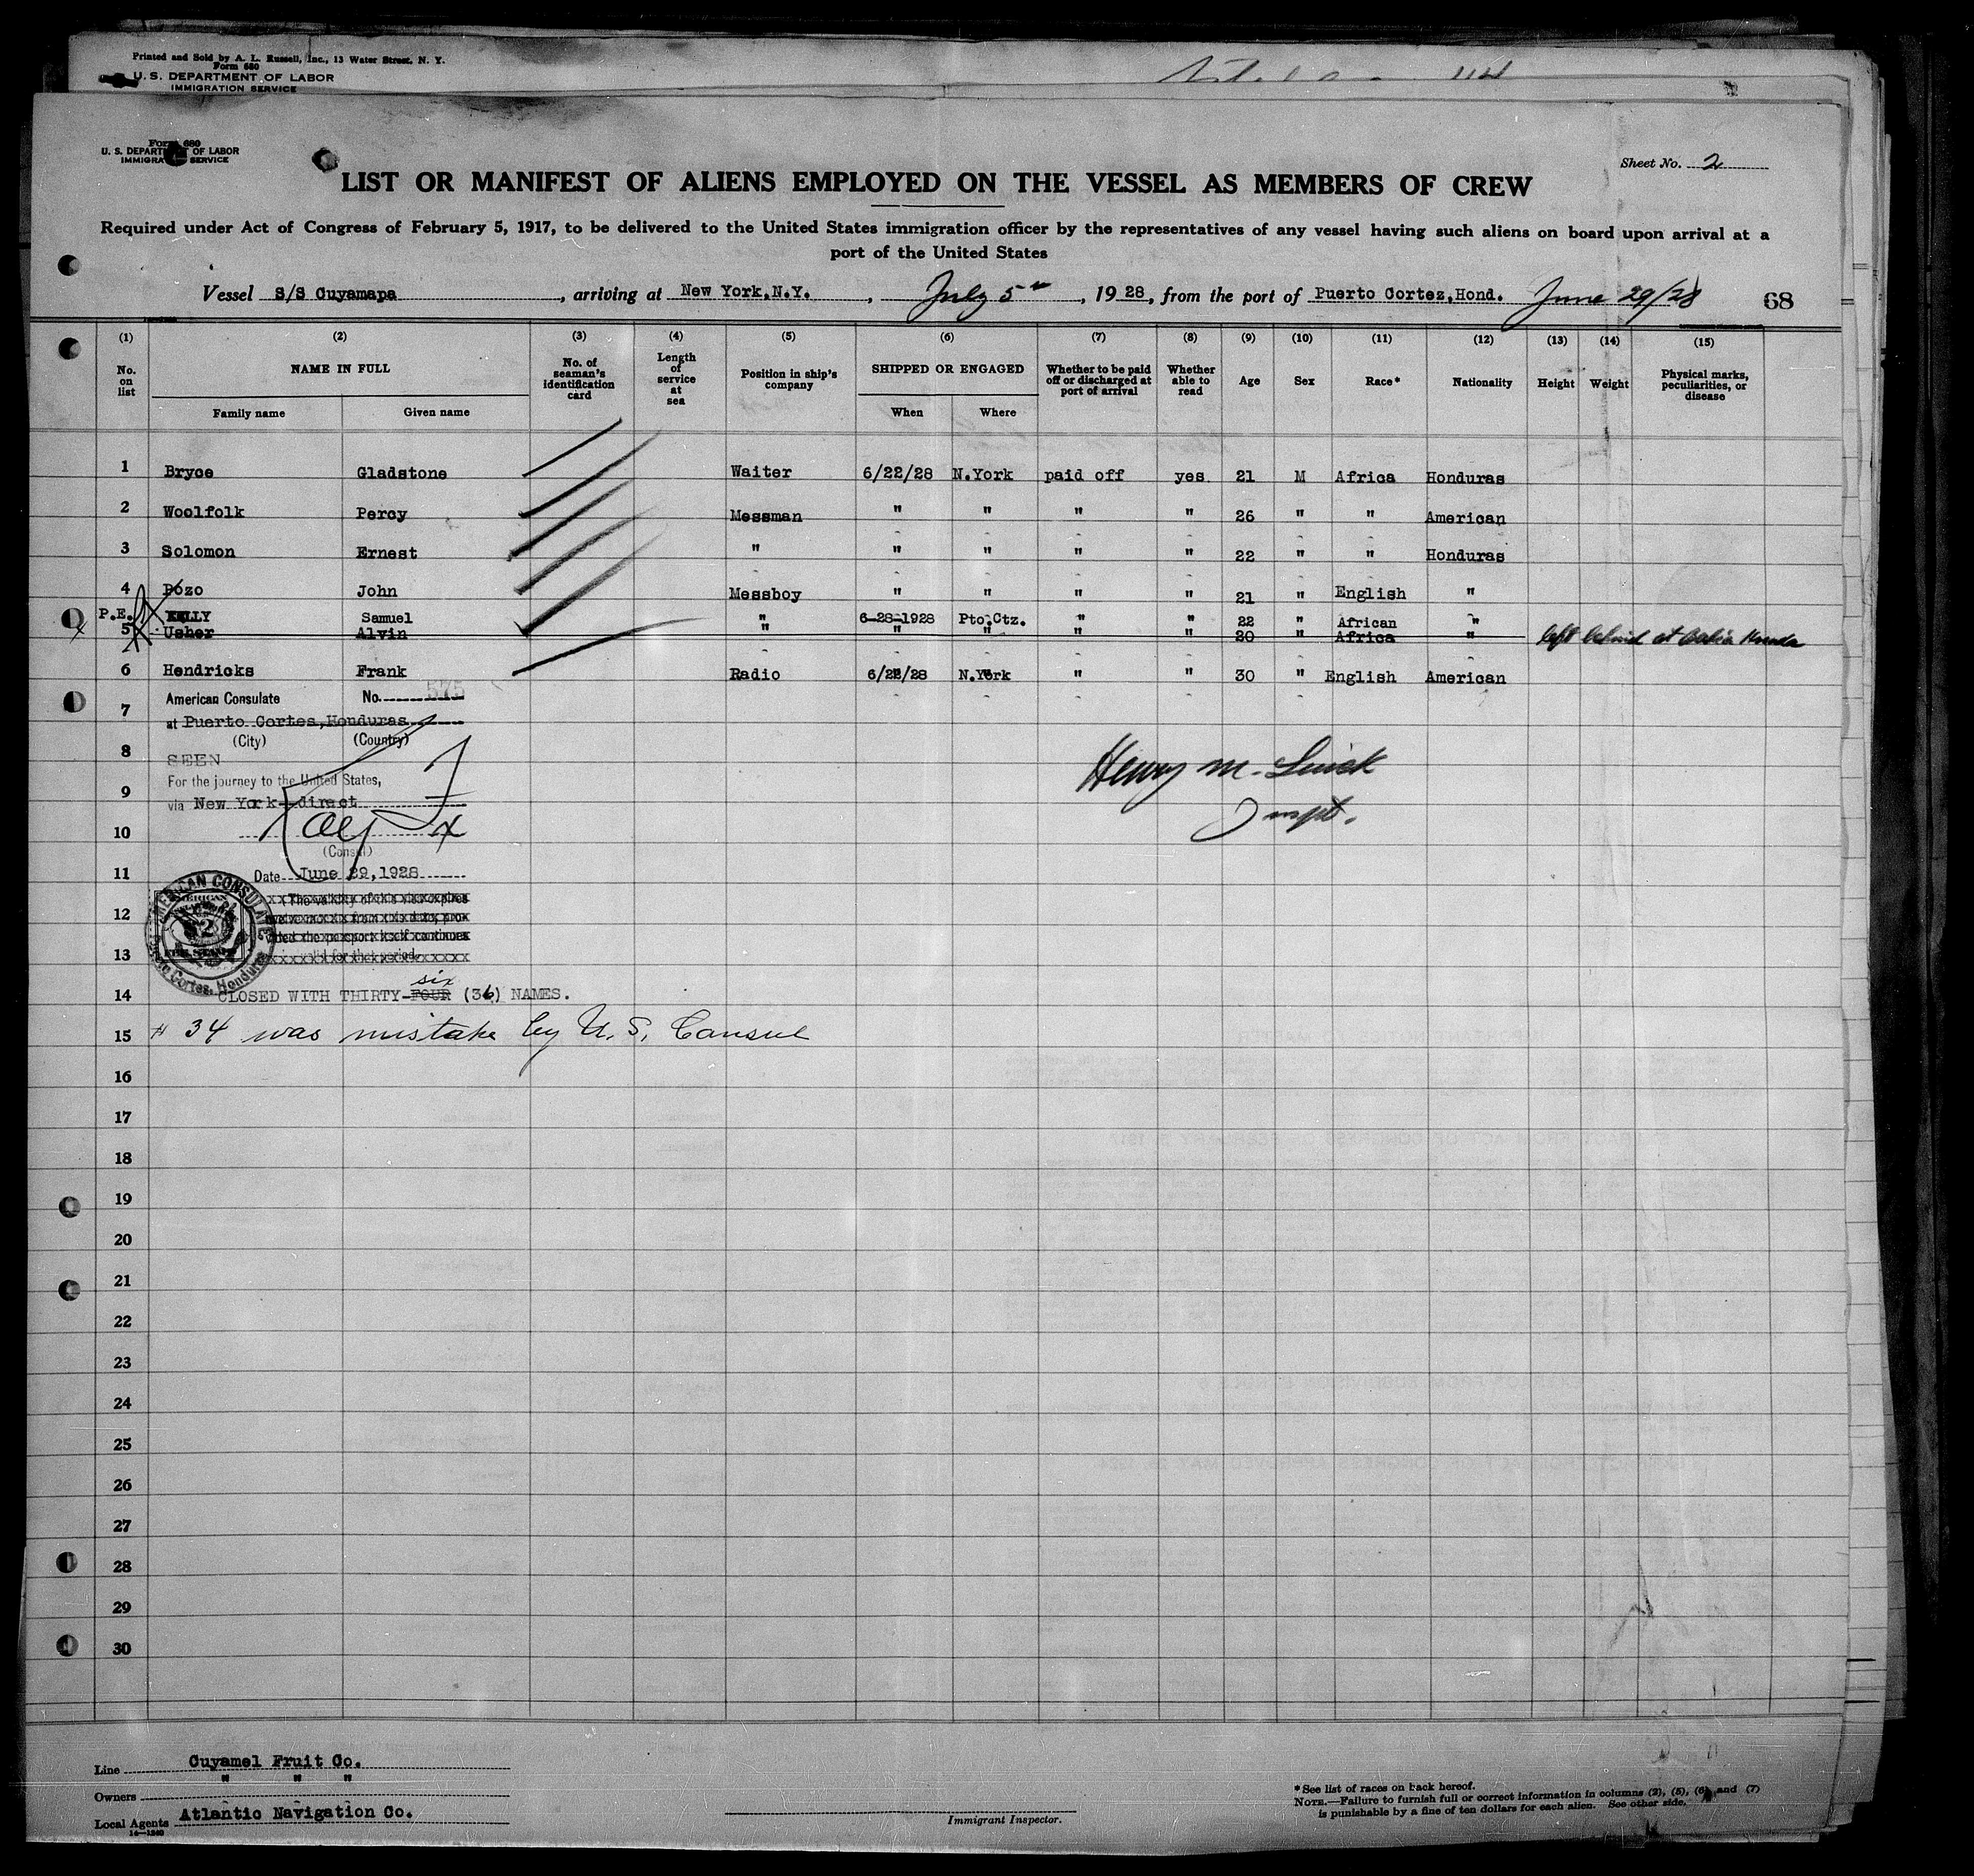 Printed and Sold by A. L. Russell, Inc., 13 Water Street, N. Y.
Form 680
U. S. DEPARTMENT OF LABOR
IMMIGRATION SERVICE
Form 680
U. S. DEPARTMENT OF LABOR
IMMIGRATION SERVICE
Sheet No. 2
LIST OR MANIFEST OF ALIENS EMPLOYED ON THE VESSEL AS MEMBERS OF CREW
Required under Act of Congress of February 5, 1917, to be delivered to the United States immigration officer by the representatives of any vessel having such aliens on board upon arrival at a
port of the United States
Vessel S/S Cuyamapa, arriving at New York,N.Y., July 5th, 1928, from the port of Puerto Cortez,Hond. June 29/28 68
(1) (2) (3) (4) (5) (6) (7) (8) (9) (10) (11) (12) (13) (14) (15)
No. on list NAME IN FULL No. of seaman's identification card Length of service at sea Position in ship's company SHIPPED OR ENGAGED Whether to be paid off or discharged at port of arrival Whether able to read Age Sex Race* Nationality Height Weight Physical marks, peculiarities, or disease
Family name Given name When Where
1 Bryce Gladstone Waiter 6/22/28 N.York paid off yes 21 M Africa Honduras
2 Woolfolk Percy Messman " " " " 26 " " American
3 Solomon Ernest " " " " " 22 " " Honduras
4 Pozo John Messboy " " " " 21 " English "
P.E. KELLY Samuel " 6-28-1928 Pto.Ctz. " " 22 " African "
x 5 Usher Alvin " " " " " 20 " Africa " left behind at Bahia Honda
6 Hendricks Frank Radio 6/22/28 N.York " " 30 " English American
American Consulate No. 575
7 at Puerto Cortes,Honduras
(City) (Country)
8 SEEN
For the journey to the United States,
9 via New York-direct
Henry M.
Inspt.
10
(Consul)
11 Date June 29,1928
AMERICAN CONSULATE
Puerto Cortes, Honduras
12
13
14 CLOSED WITH THIRTY-FOUR six (36) NAMES.
15 # 34 was mistake by U. S. Consul
16
17
18
19
20
21
22
23
24
25
26
27
28
29
30
Line Cuyamel Fruit Co.
Owners " " "
Local Agents Atlantic Navigation Co.
14—1240
Immigrant Inspector.
*See list of races on back hereof.
NOTE.—Failure to furnish full or correct information in columns (2), (5), (6), and (7)
is punishable by a fine of ten dollars for each alien. See other side.